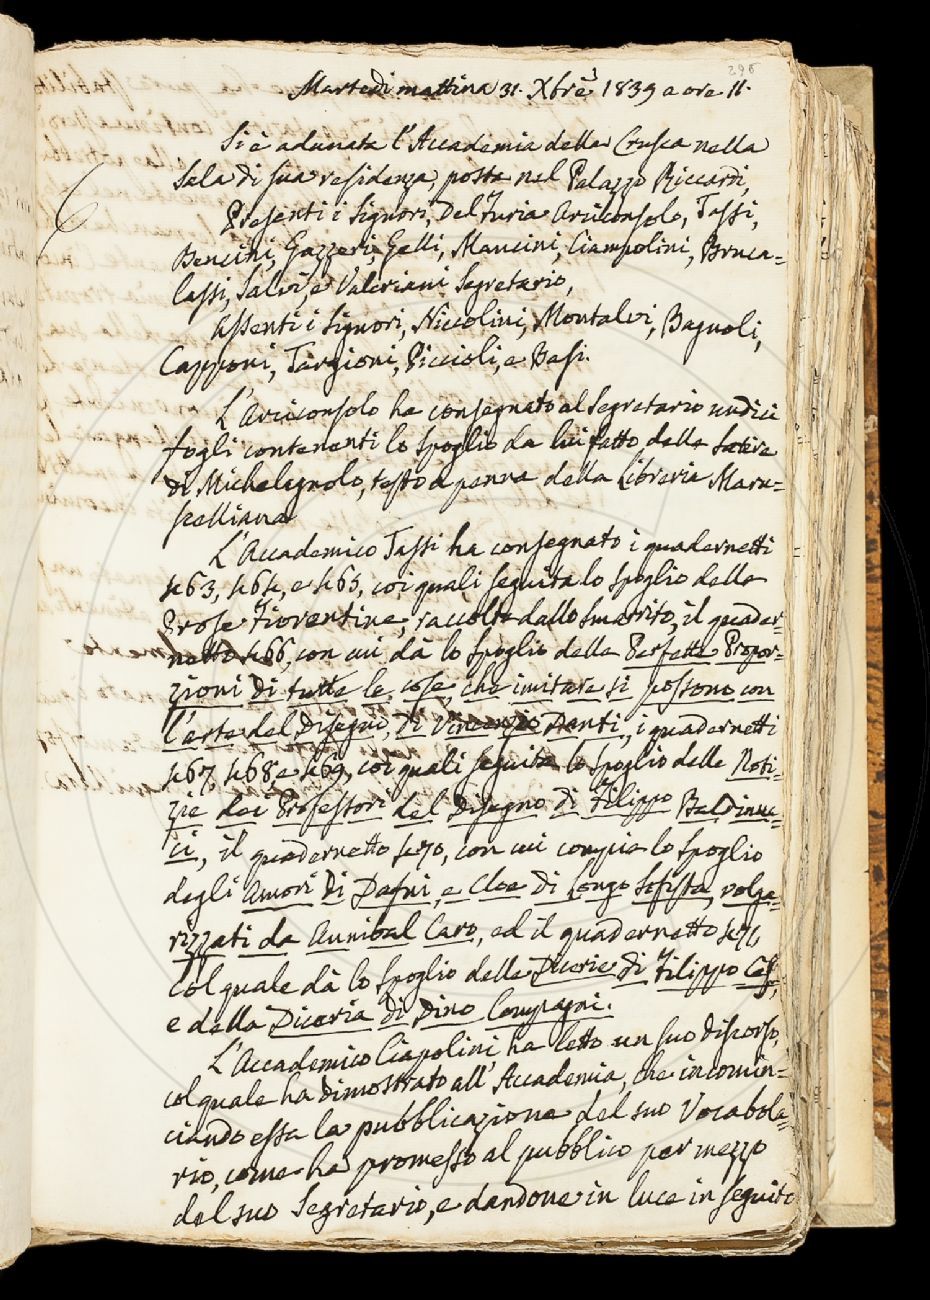 296
Martedì mattina 31. Xbrè 1839 a ore 11.
Si è adunata l'Accademia della Crusca nella
Sala di sua residenza, posta nel Palazzo Riccardi,
Presenti i Signori, Del Furia Arciconsolo, Tassi,
Bencini, Gazzeri, Gelli, Mancini, Ciampolini, Bruca=
lassi, Salvi, e Valeriani Segretario,
Assenti i Signori, Niccolini, Montalvi, Bagnoli,
Capponi, Targioni, Piccioli, e Basi.
L'Arciconsolo ha consegnato al Segretario undici
fogli contenenti lo spoglio da lui fatto delle Satire
di Michelagnolo, testo a penna della Libreria Maru=
scelliana
L'Accademico Tassi ha consegnato i quadernetti
463, 464, e 465, coi quali seguita lo spoglio delle
Prose Fiorentine, raccolte dallo Smarrito, il quader=
netto 466, con cui dà lo spoglio delle Perfette Propor=
zioni di tutte le cose, che imitare si possono con
l'arte del Disegno, di Vincenzio Danti, i quadernetti
467, 468 e 469, coi quali seguita lo spoglio delle Noti=
zie dei Professori del Disegno di Filippo Baldinuc=
ci, il quadernetto 470, con cui compie lo spoglio
degli Amori di Dafni, e Cloe di Longo Sofista, volga=
rizzati da Annibal Caro, ed il quadernetto 471,
col quale dà lo spoglio delle Dicerie di Filippo Ceffi,
e della Diceria di Dino Compagni.
L'Accademico Ciapolini ha letto un suo discorso,
col quale ha dimostrato all'Accademia, che incomin=
ciando essa la pubblicazione del suo Vocabola=
rio, come ha promesso al pubblico per mezzo
del suo Segretario, e dandone in luce in seguito